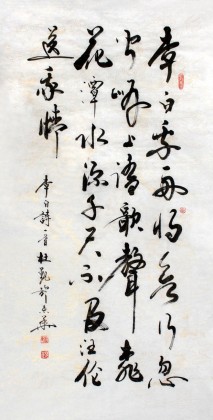 李白乘舟将欲行忽
闻岸上踏歌聲桃
花潭水深千尺不及汪伦
送我情
李白詩一首